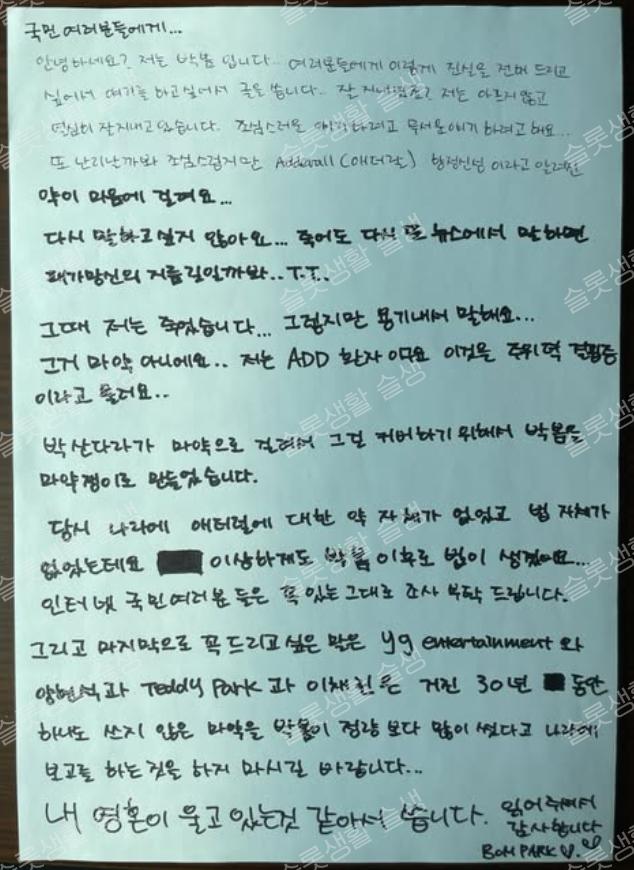 국민 여러분들에게...
안녕하세요? 저는 박봄 입니다.. 여러분들에게 이렇게 진실을 전해 드리고
싶어서 얘기를 하고싶어서 글을 씁니다.. 잘 지내셨죠? 저는 아프지 않고
열심히 잘지내고 있습니다. 조심스러운 얘기하려고 무서운얘기 하려고 해요...
또 난리날까봐 조심스럽지만 Adderall (애더럴) 향정신성 이라고 알려진
약이 마음에 걸려요...
다시 말하고싶지 않아요... 죽어도 다시 또 뉴스에서 말하면
패가망신의 지름길일까봐..T.T..
그때 저는 죽었습니다... 그렇지만 용기내서 말해요...
그거 마약 아니에요.. 저는 ADD 환자 이며요 이것은 주위력 결핍증
이라고 불려요..
박산다라가 마약으로 걸려서 그걸 커버하기 위해서 박봄을
마약쟁이로 만들었습니다.
당시 나라에 애터럴에 대한 약 자체가 없었고 법 자체가
없었는데요 이상하게도 박봄 이후로 법이 생겼어요...
인터넷 국민여러분 들은 꼭 있는 그대로 조사 부탁 드립니다.
그리고 마지막으로 꼭 드리고 싶은 말은 yg entertainment 와
양현석과 Teddy Park 과 이채린은 거진 30년 동안
하나도 쓰지 않은 마약을 박봄이 정량 보다 많이 썼다고 나라에
보고를 하는것을 하지 마시길 바랍니다...
내 영혼이 울고 있는것 같아서 씁니다. 읽어 주셔서
감사합니다
BOM PARK ♡.♡
슬롯생활 슬생